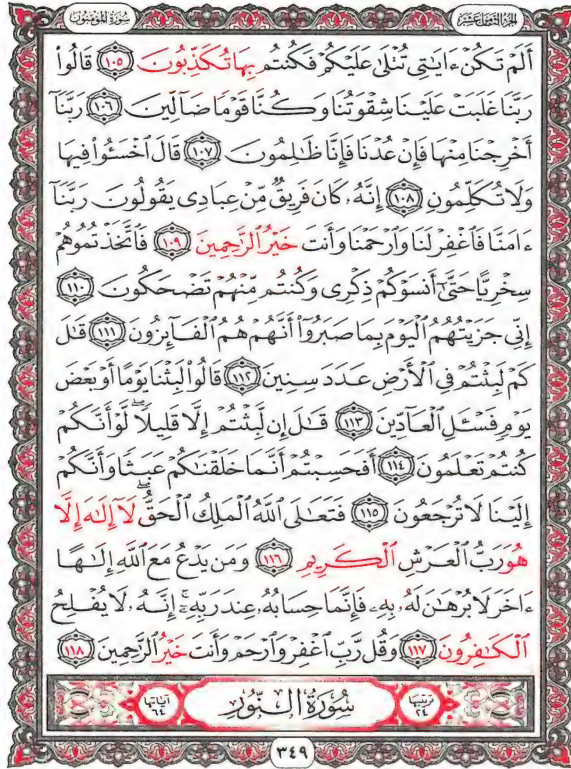 الجزء الثامن عشر سورة المؤمنون
أَلَمْ تَكُنْ ءَايَٰتِى تُتْلَىٰ عَلَيْكُمْ فَكُنتُم بِهَا تُكَذِّبُونَ ١٠٥ قَالُوا۟
رَبَّنَا غَلَبَتْ عَلَيْنَا شِقْوَتُنَا وَكُنَّا قَوْمًا ضَآلِّينَ ١٠٦ رَبَّنَآ
أَخْرِجْنَا مِنْهَا فَإِنْ عُدْنَا فَإِنَّا ظَٰلِمُونَ ١٠٧ قَالَ ٱخْسَـُٔوا۟ فِيهَا
وَلَا تُكَلِّمُونِ ١٠٨ إِنَّهُۥ كَانَ فَرِيقٌ مِّنْ عِبَادِى يَقُولُونَ رَبَّنَآ
ءَامَنَّا فَٱغْفِرْ لَنَا وَٱرْحَمْنَا وَأَنتَ خَيْرُ ٱلرَّٰحِمِينَ ١٠٩ فَٱتَّخَذْتُمُوهُمْ
سِخْرِيًّا حَتَّىٰٓ أَنسَوْكُمْ ذِكْرِى وَكُنتُم مِّنْهُمْ تَضْحَكُونَ ١١٠
إِنِّى جَزَيْتُهُمُ ٱلْيَوْمَ بِمَا صَبَرُوٓا۟ أَنَّهُمْ هُمُ ٱلْفَآئِزُونَ ١١١ قَٰلَ
كَمْ لَبِثْتُمْ فِى ٱلْأَرْضِ عَدَدَ سِنِينَ ١١٢ قَالُوا۟ لَبِثْنَا يَوْمًا أَوْ بَعْضَ
يَوْمٍ فَسْـَٔلِ ٱلْعَآدِّينَ ١١٣ قَٰلَ إِن لَّبِثْتُمْ إِلَّا قَلِيلًا ۖ لَّوْ أَنَّكُمْ
كُنتُمْ تَعْلَمُونَ ١١٤ أَفَحَسِبْتُمْ أَنَّمَا خَلَقْنَٰكُمْ عَبَثًا وَأَنَّكُمْ
إِلَيْنَا لَا تُرْجَعُونَ ١١٥ فَتَعَٰلَى ٱللَّهُ ٱلْمَلِكُ ٱلْحَقُّ ۖ لَآ إِلَٰهَ إِلَّا
هُوَ رَبُّ ٱلْعَرْشِ ٱلْكَرِيمِ ١١٦ وَمَن يَدْعُ مَعَ ٱللَّهِ إِلَٰهًا
ءَاخَرَ لَا بُرْهَٰنَ لَهُۥ بِهِۦ فَإِنَّمَا حِسَابُهُۥ عِندَ رَبِّهِۦٓ ۚ إِنَّهُۥ لَا يُفْلِحُ
ٱلْكَٰفِرُونَ ١١٧ وَقُل رَّبِّ ٱغْفِرْ وَٱرْحَمْ وَأَنتَ خَيْرُ ٱلرَّٰحِمِينَ ١١٨
ترتيبها ٢٤ سُورَةُ النُّورِ آياتها ٦٤
٣٤٩